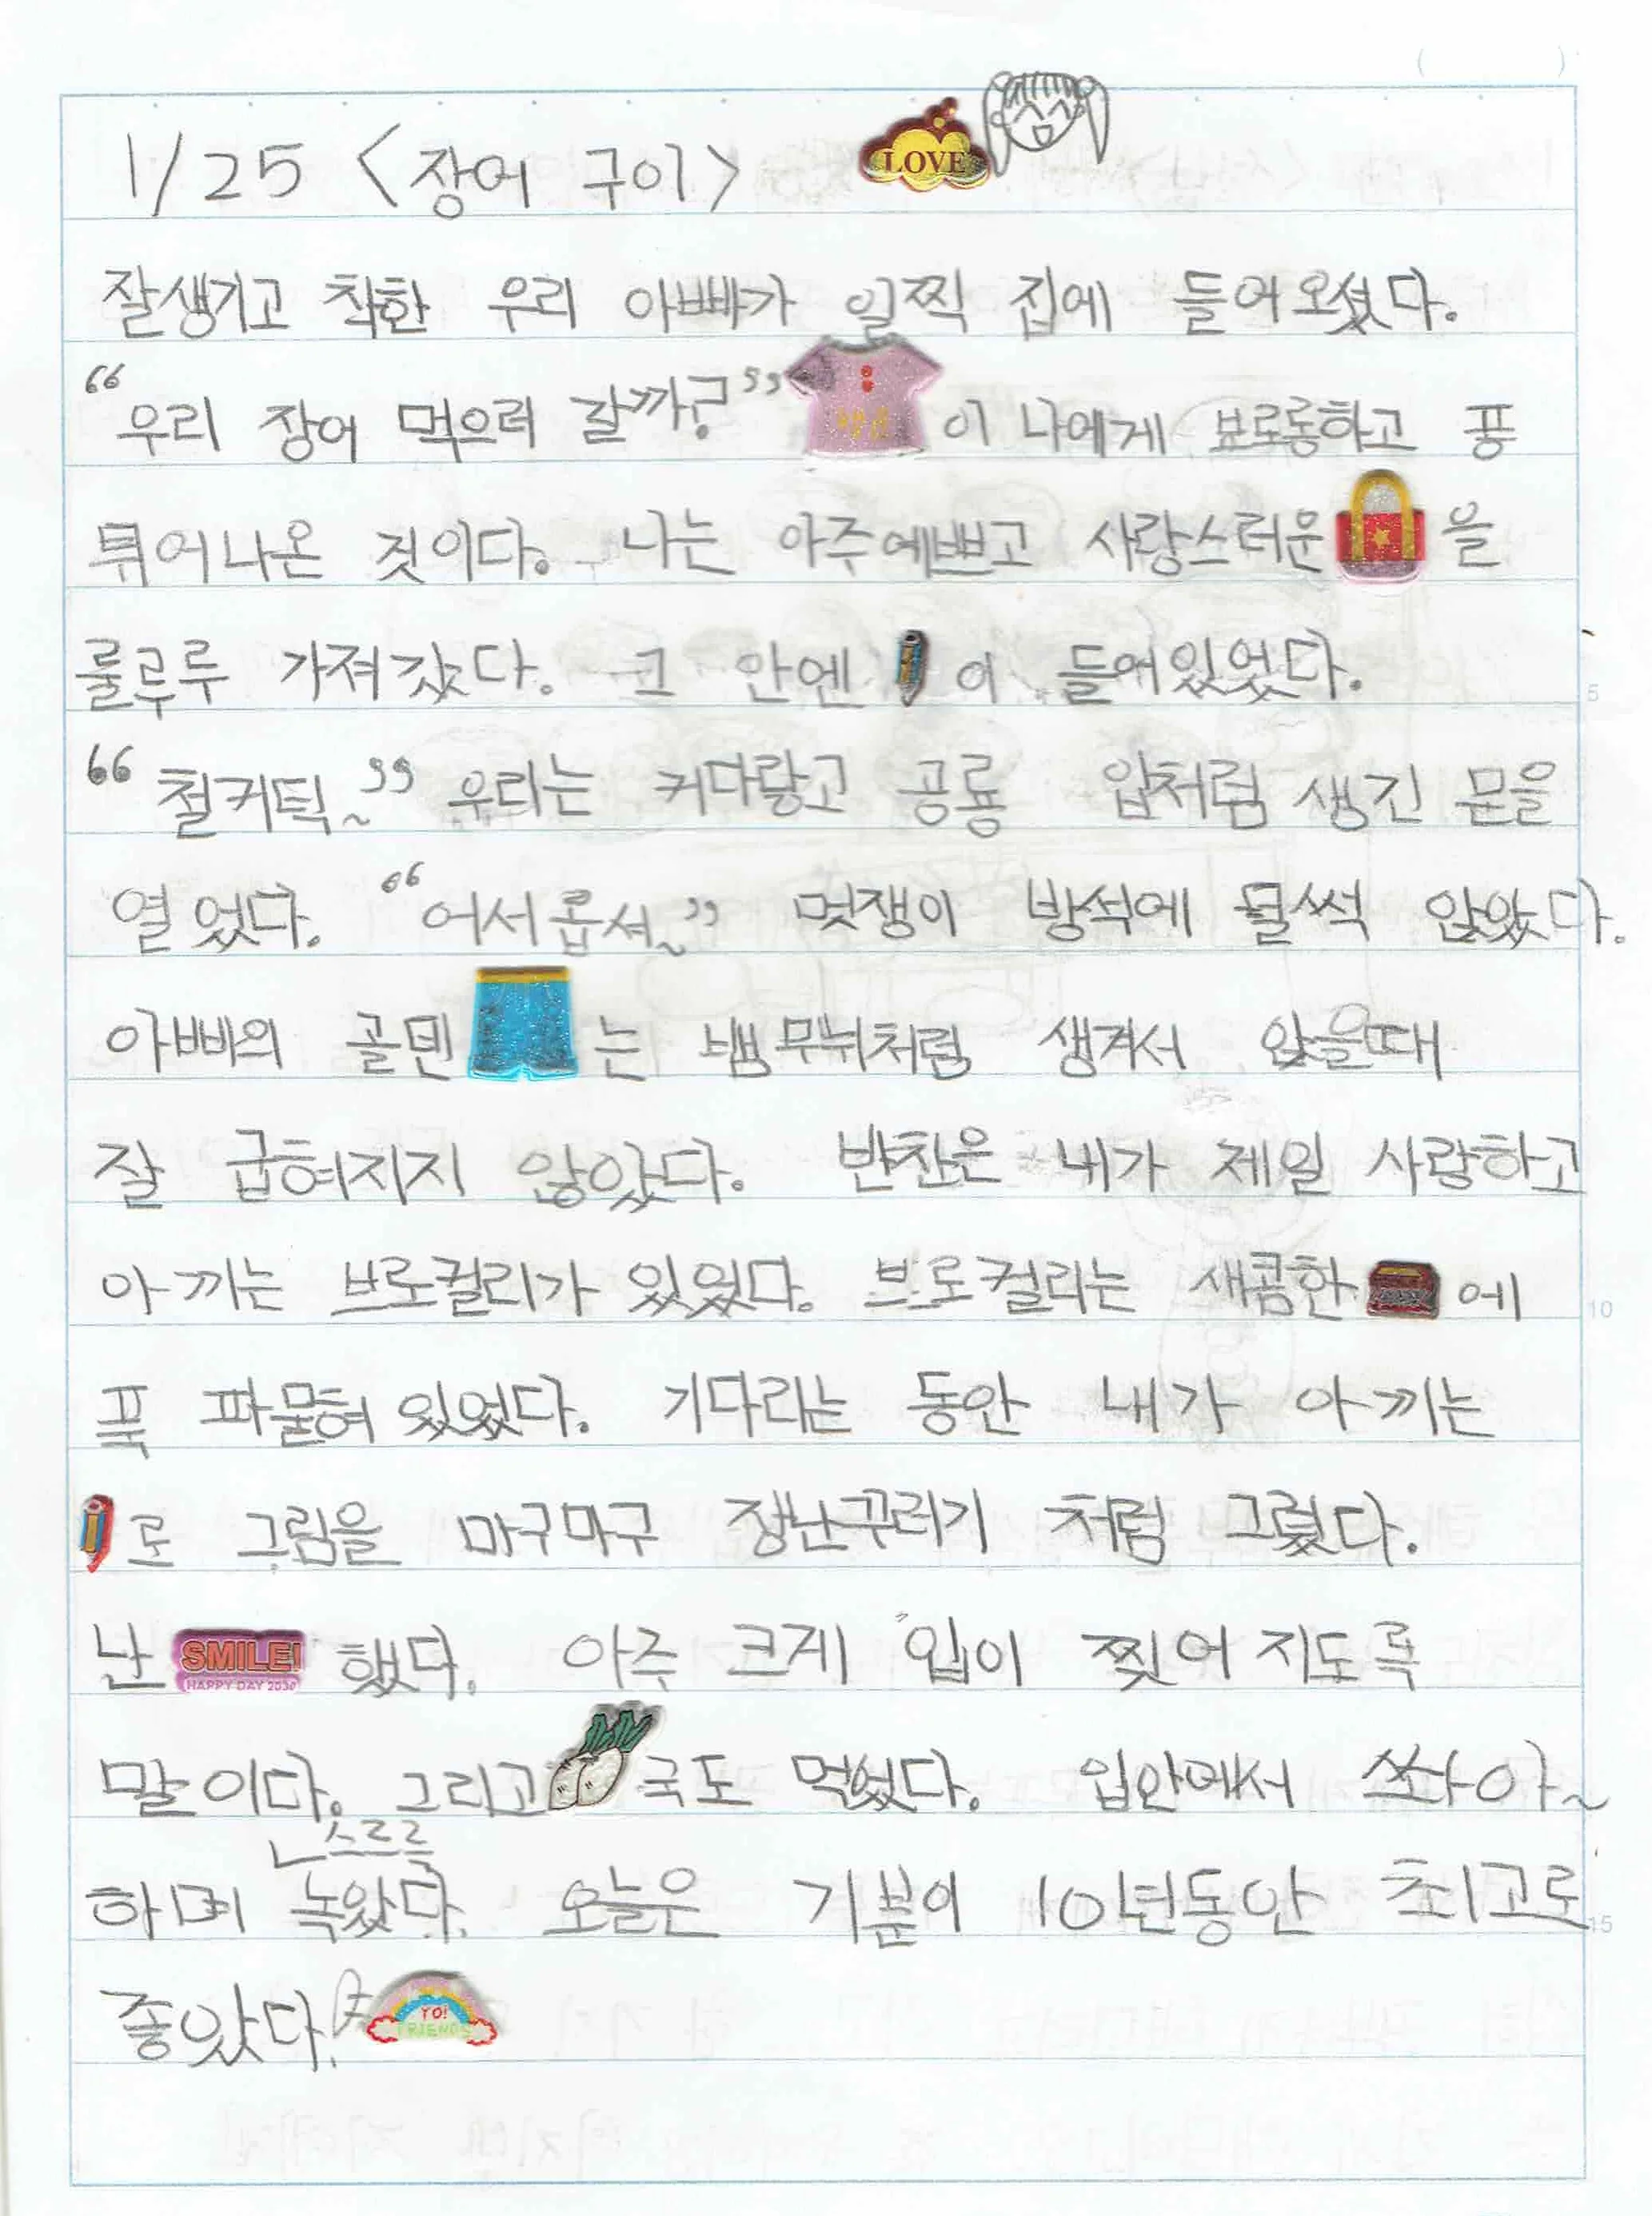 1/25 <장어 구이> LOVE
잘생기고 착한 우리 아빠가 일찍 집에 들어오셨다.
“우리 장어 먹으러 갈까?” 이 나에게 뽀로롱하고 퐁
튀어나온 것이다. 나는 아주예쁘고 사랑스러운 을
룰루루 가져갔다. 그 안엔 이 들어있었다.
“철커턱~” 우리는 커다랗고 공룡 입처럼 생긴 문을
열었다. “어서옵셔~” 멋쟁이 방석에 털썩 앉았다.
아빠의 골덴 는 뱀무늬처럼 생겨서 앉을때
잘 굽혀지지 않았다. 반찬은 내가 제일 사랑하고
아끼는 브로컬리가 있었다. 브로컬리는 새콤한 에
푹 파묻혀 있었다. 기다리는 동안 내가 아끼는
로 그림을 마구마구 장난꾸러기 처럼 그렸다.
난 SMILE! HAPPY DAY 했다. 아주 크게 입이 찢어 지도록
말이다. 그리고 국도 먹었다. 입안에서 쏴아~
스르르
하며 녹았다. 오늘은 기분이 10년동안 최고로
좋았다. YO! FRIENDS